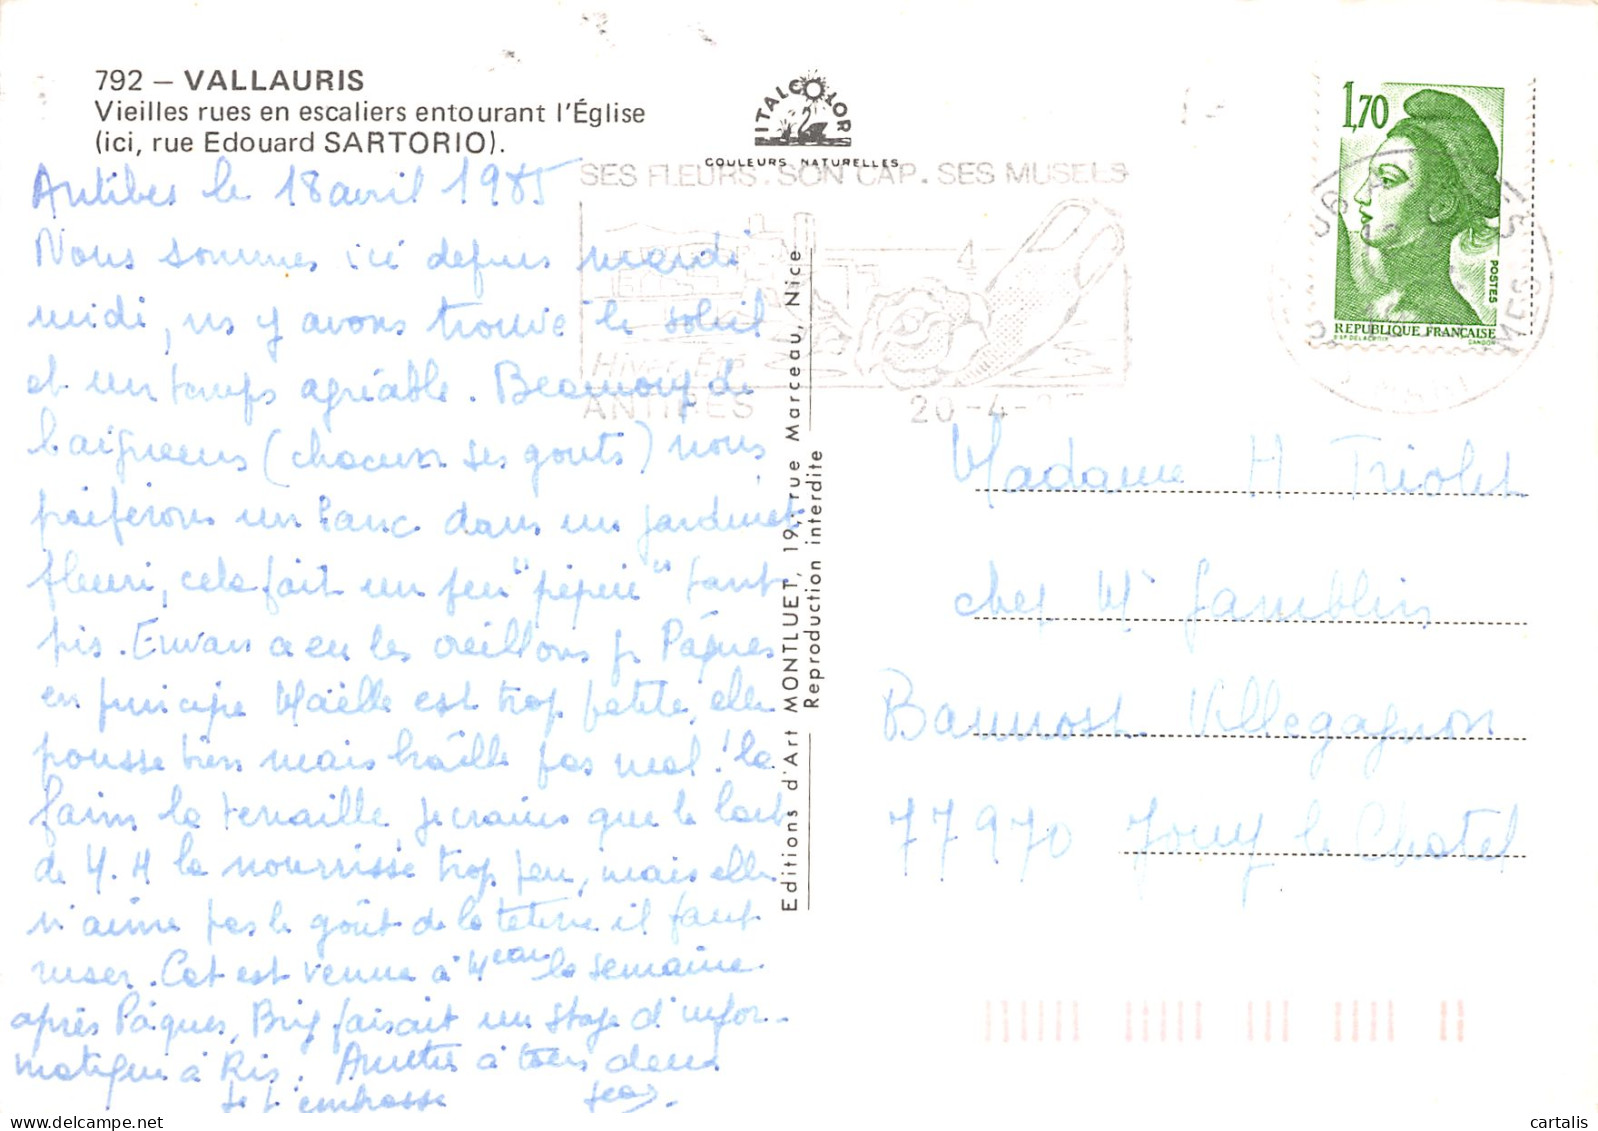 792 – VALLAURIS
Vieilles rues en escaliers entourant l'Église
(ici, rue Edouard SARTORIO).
ITALCOLOR
COULEURS NATURELLES
Antibes le 18 avril 1985
Nous sommes ici depuis mardi
midi, ns y avons trouvé le soleil
et un temps agréable. Beaucoup de
baigneurs (chacun ses gouts) nous
préférons un banc dans un jardinet
fleuri, cela fait un peu "pépère" tant
pis. Erwan a eu les oreillons pr Pâques
en principe Maëlle est trop petite, elle
pousse bien mais braille pas mal! la
faim la tenaille je crains que le lait
de M.H la nourrisse trop peu, mais elle
n'aime pas le goût de la tétine il faut
ruser. Cat est venue à 4eau la semaine
après Pâques, Brig faisait un stage d'infor-
matique à Ris. Amitié à tous deux
Je t'embrasse
SES FLEURS. SON CAP. SES MUSEES
Hiver Eté
ANTIBES
20-4-
Editions d'Art MONTLUET, 19, rue Marceau, Nice
Reproduction interdite
1,70
POSTES
REPUBLIQUE FRANÇAISE
GANDON
Madame H Triolet
chez Mr Gamblin
Bannost Villegagnon
77970 Jouy le Chatel
cartalis